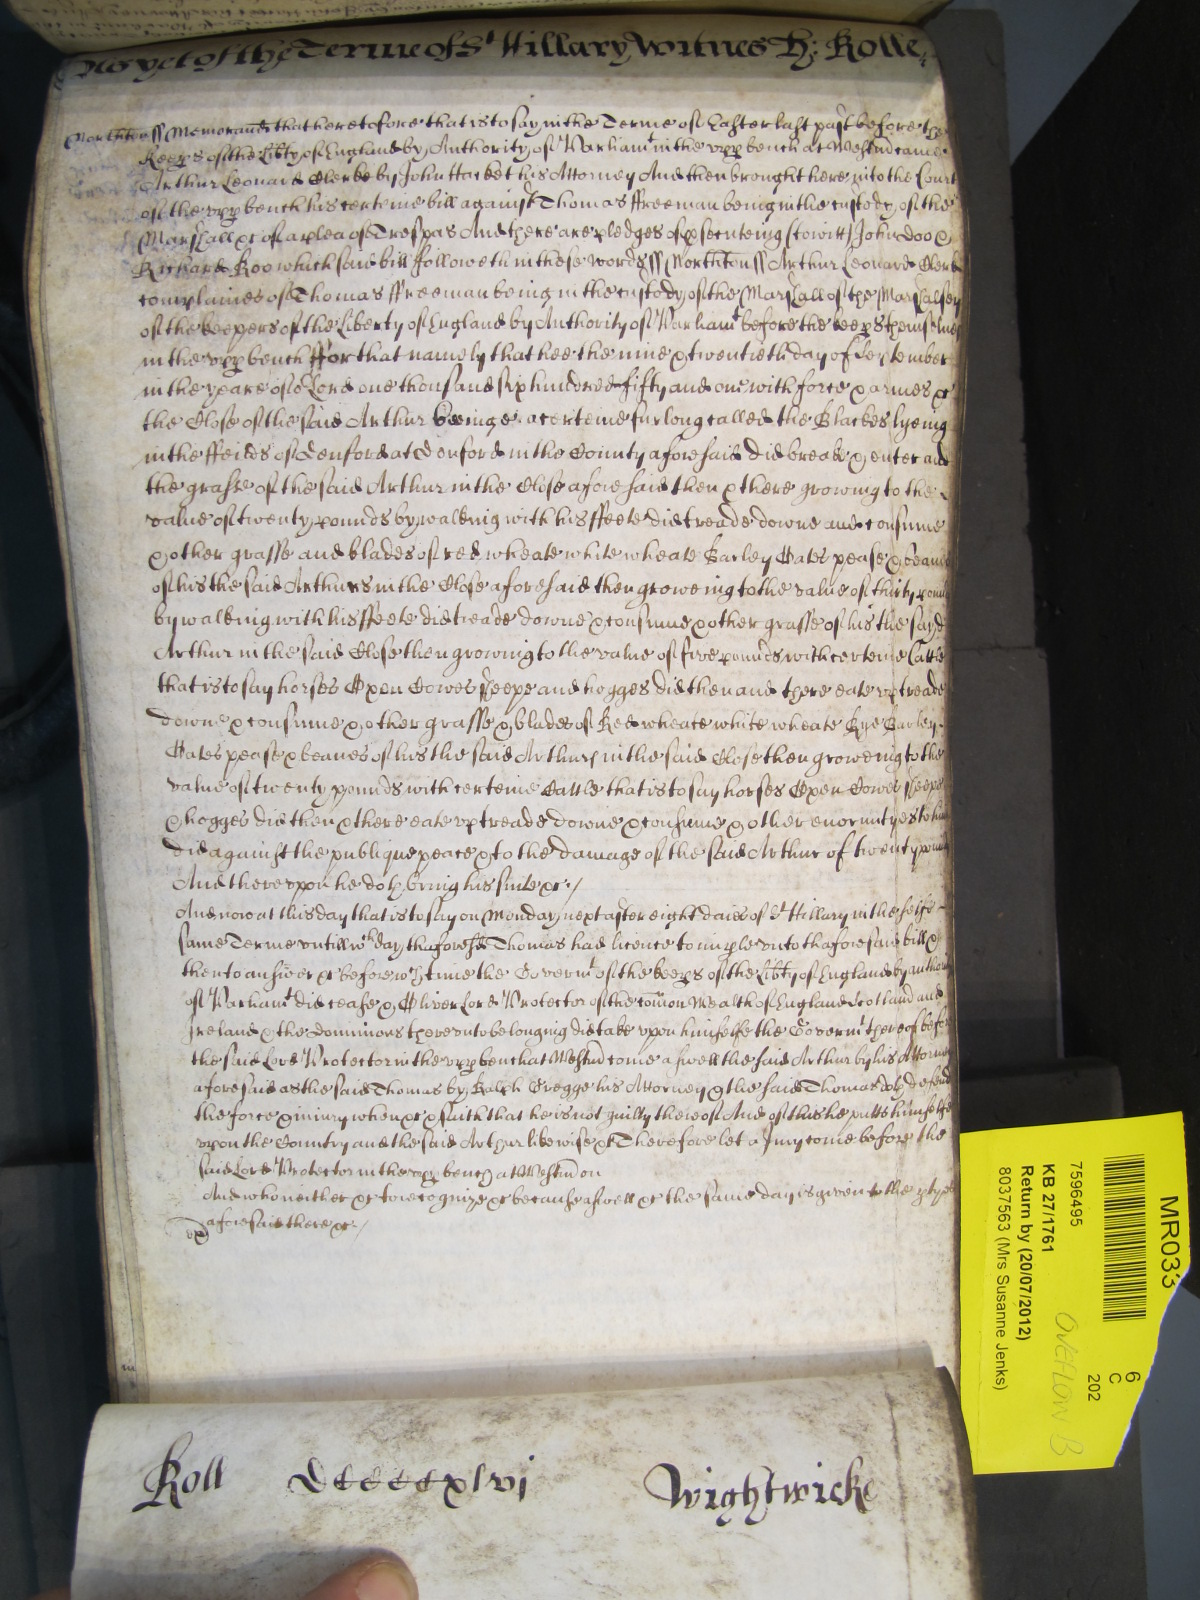 As yet of the Terme of St Hillary Witnes H: Rolle
Northton ss Memorand that heretofore that is to say in the Terme of Easter last past before the
Keeps of the Libty of England by Authority of Parliamt in the upp bench at Westmr came
Arthur Leonard Clerke by John Hacket his Attorney And then brought here into the Court
of the upp bench his certeine bill against Thomas ffreeman being in the custody of the
Marshall &c of a plea of Trespas And there are pledges of psecuteing (to witt) John Doo &
Richard Roo which said bill followeth in these words ss Northton ss Arthur Leonard Clerk
complaines of Thomas ffreeman being in the custody of the Marshall of the Marshalsey
of the keepers of the Liberty of England by Authority of Parliamt before the keeps themselves
in the upp bench ffor that namely that hee the nine & twentieth day of September
in the yeare of or Lord one thousand six hundred fifty and one with force & armes &c
the Close of the said Arthur beinge a certeine furlong called the Blackes lyeing
in the ffeilds of Denford at Denford in the County aforesaid did breake & enter and
the grasse of the said Arthur in the Close aforesaid then & there growing to the
value of twenty pounds by walking with his ffeete did treade downe and consume
& other grasse and blades of red wheate white wheate Barley Oates pease & beanes
of his the said Arthurs in the Close aforesaid then groweing to the value of thirty pounds
by walking with his ffeete did treade downe & consume & other grasse of his the sayd
Arthur in the said Close then growing to the value of five pounds with certeine Cattle
that is to say horses Oxen Cowes sheepe and hogges did then and there eate up treade
downe & consume & other grasse & blades of Red wheate white wheate Rye Barley
Oates pease & beanes of his the said Arthurs in the said Close then groweing to the
value of twenty pounds with certeine Cattle that is to say horses Oxen Cowes sheepe
& hogges did then & there eate up treade downe & consume & other enormityes to him
did against the publique peace & to the damage of the said Arthur of twenty pounds
And thereupon he doth bring his suite &c /
And now at this day that is to say on Monday next after eight daies of St Hillary in the selfe
same Terme untill wch day thaforesd Thomas had licence to imple unto thaforesaid bill &
then to answer &c before wch time the Governt of the keeps of the Libty of England by author
of Parliamt did cease & Oliver Lord Protector of the comon Wealth of England Scotland and
Ireland & the dominions thereunto belonging did take upon himselfe the Governt thereof before
the said Lord Protector in the upp bench at Westmr come aswell the said Arthur by his Attorney
aforesaid as the said Thomas by Ralph Gregge his Attorney & the said Thomas doth defend
the force & iniury when &c & saith that he is not guilty thereof And of this he putts himselfe
upon the Country and the said Arthur likewise &c Therefore let a Jury come before the
said Lord Protector in the upp bench at Westmr on
And who neither &c to recognize &c because aswell &c the same day is given to the ptyes
aforesaid there &c /
Roll DCCCCCxlvi Wightwicke
MR033
6
C
202
7596495
KB 27/1761
Return by (20/07/2012)
8037563 (Mrs Susanne Jenks)
OVEFLOW B